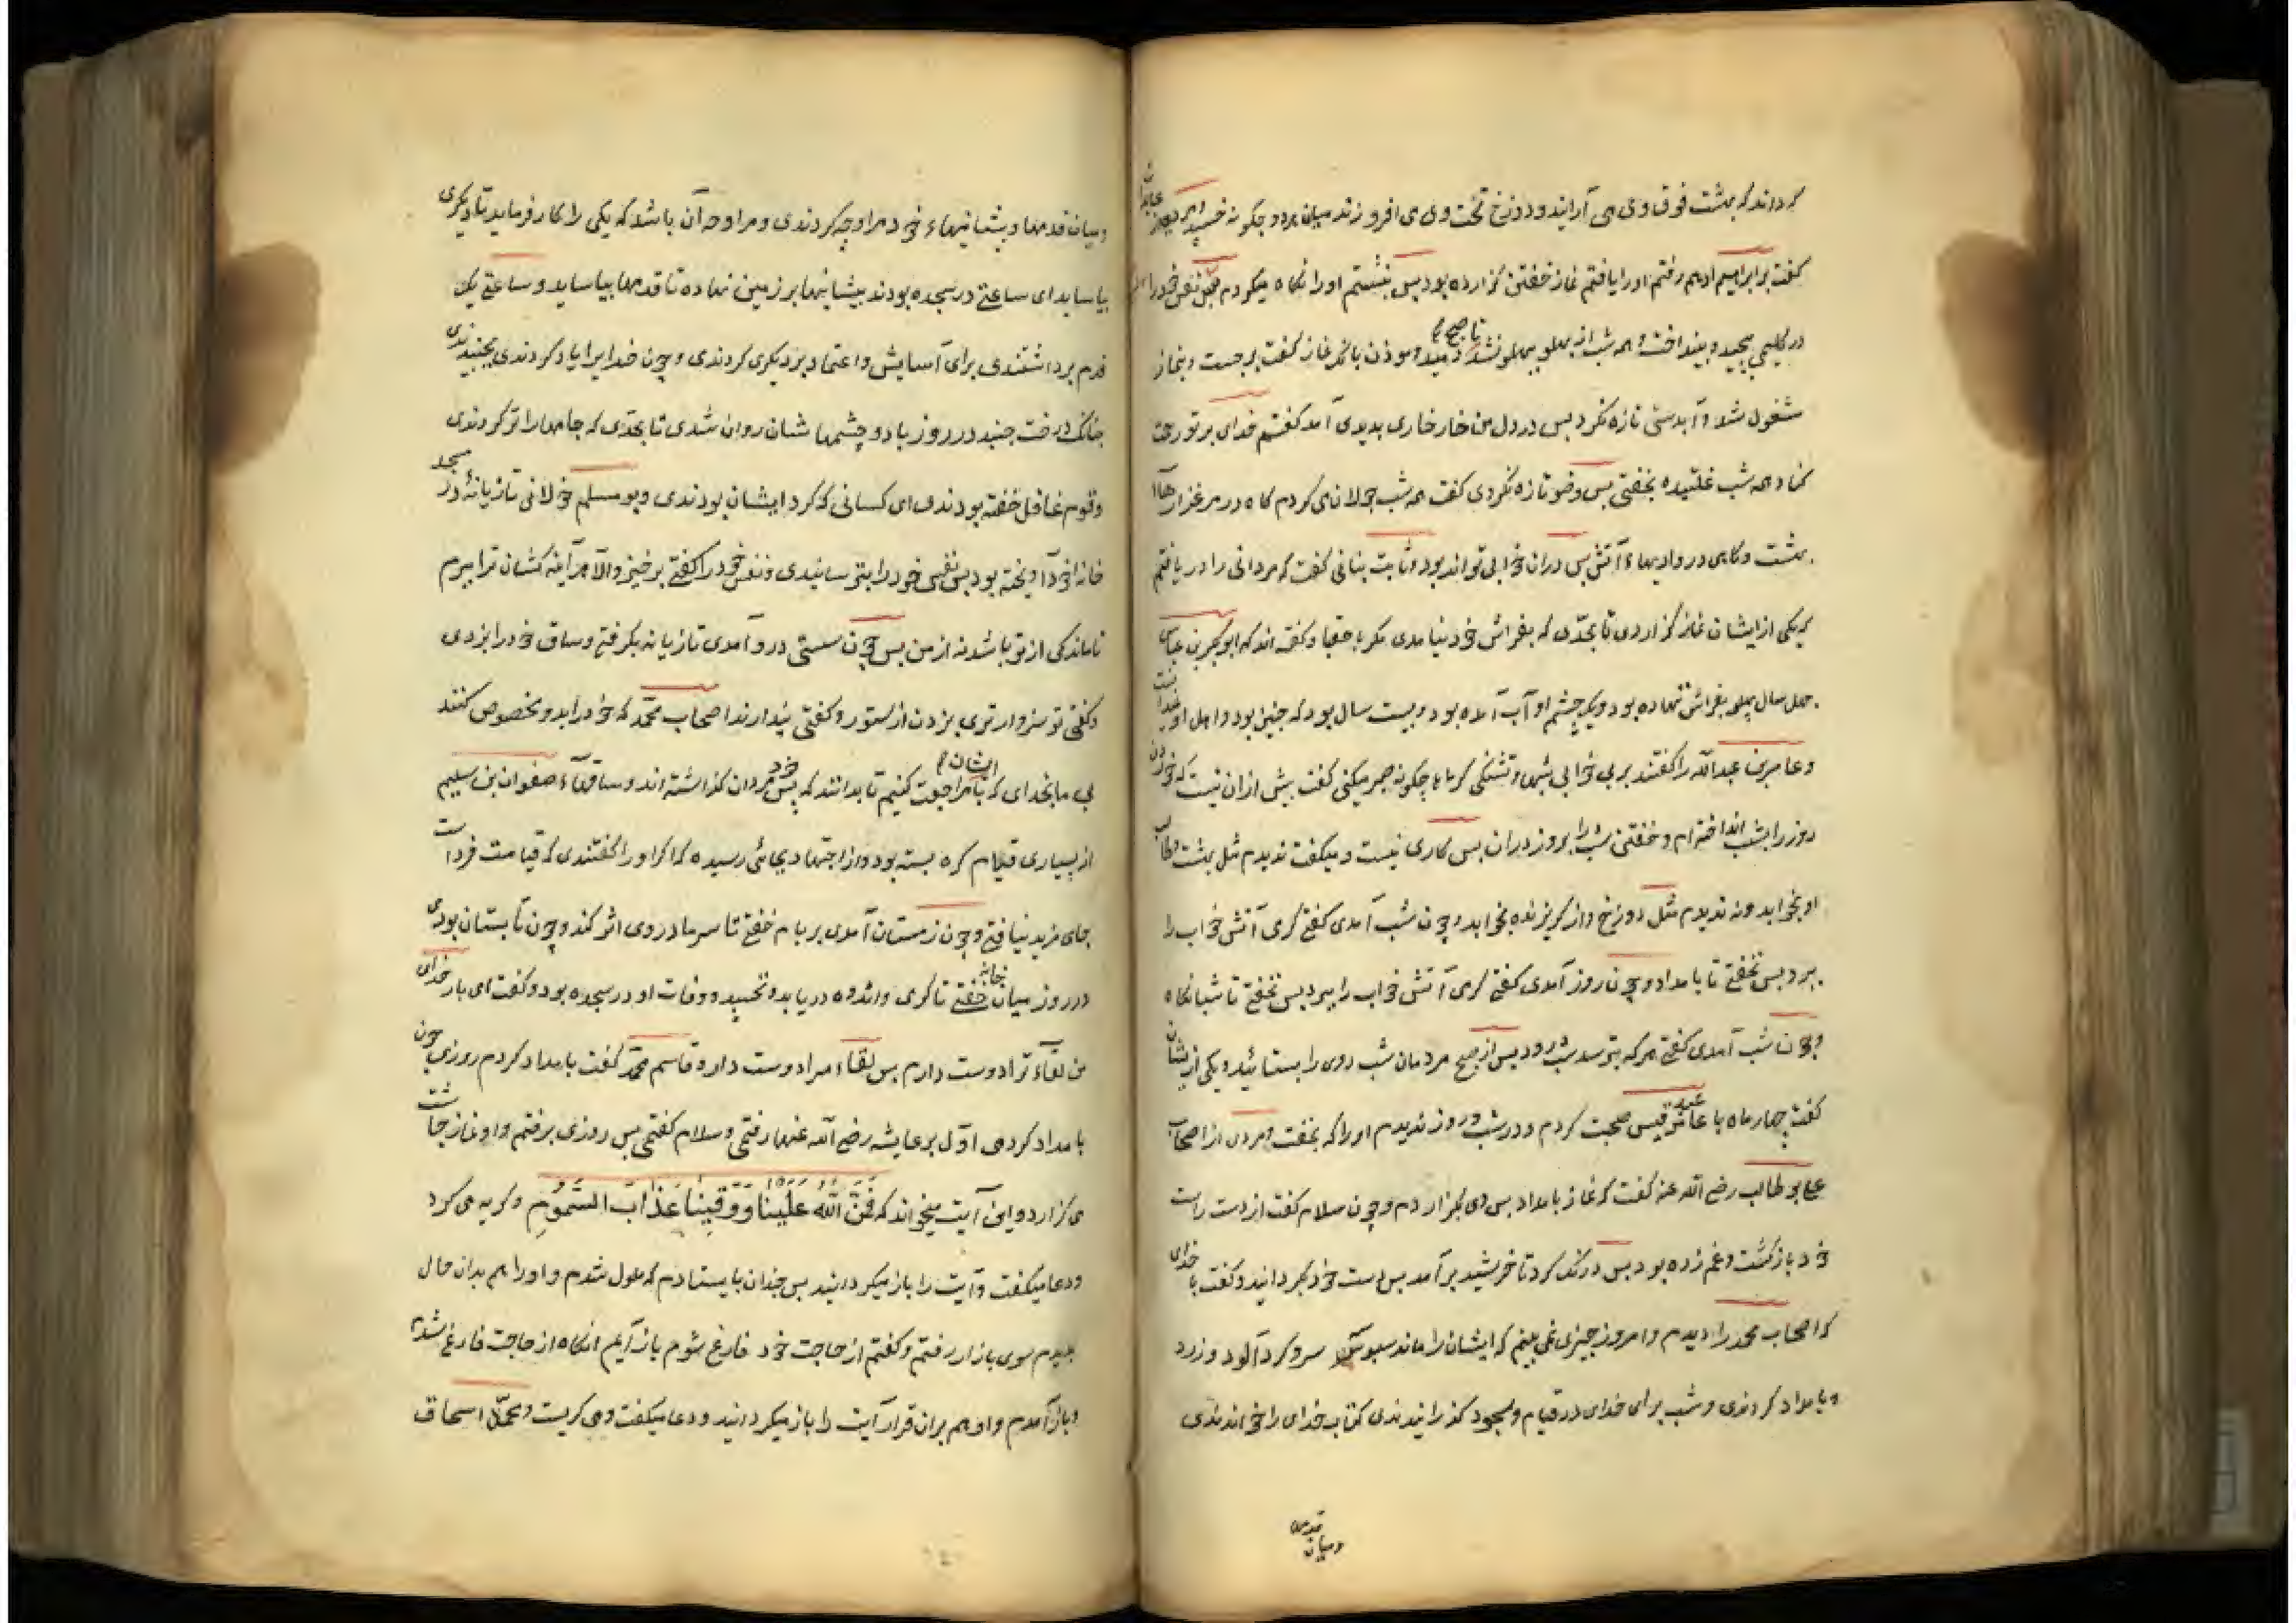 که داند که بهشت فوق او می آرایند و دوزخ تحت وی می افروزند میان هر دو چگونه خسپد
گفت بر ابراهیم ادهم رفتم او را یافتم نماز خفتن گزارده بود پس بنشستم او را نگاه میکردم نفس خود را
در گلیمی پیچید و بینداخت و همه شب از پهلو بپهلو نشد تا صبح دمید و موذن بانک نماز گفت برجست و بنماز
مشغول شد و آبدستی تازه نکرد پس در دل من خار خاری پدید می آمد گفتم خدای بر تو رحمت
کناد همه شب غلتیده بخفتی پس وضو تازه نکردی گفت همه شب جولان می کردم گاه در مرغزارهاء
بهشت و گاهی در وادیهاء آتش پس در ان خوابی تواند بود و ثابت بنانی گفت که مردانی را دریافتم
که یکی از ایشان نماز گزاردی تا بحدی که بفراش خود نیامدی مگر و گفته اند که ابوبکر بن عیاش
چهل سال پهلو بفراش ننهاده بود و یک چشم او آب آمده بود و بیست سال بود که چنین بود و اهل او
وعامر بن عبدالله را گفتند بر بی خوابی شبها و تشنگی گرماها چگونه صبر میکنی گفت بیش ازان نیست که خوردن
روز را بشب انداخته ام و خفتن شب را بروز دران بس کاری نیست و میگفت ندیدم مثل بهشت طالب
او بخوابد و نه ندیدم مثل دوزخ و از گریزنده بخوابد و چون شب آمدی گفتی گرمی آتش خواب را
ببرد پس نخفتی تا بامداد و چون روز آمدی گفتی گرمی آتش خواب را ببرد پس نخفتی تا شبانگاه
و چون شب آمدی گفتی هر که بترسد بشب رود پس از صبح مردمان شب روی را بستایند و یکی از ایشان
گفت چهار ماه با عامر عبد قیس صحبت کردم و در شب و روز ندیدم او را که بخفت و مردی از اصحاب
علی بو طالب رضی الله عنه گفت که نماز بامداد پس وی بگزاردم و چون سلام گفت از دست راست
خود بازگشت و غم زده بود پس درنگ کرد تا خورشید برآمد پس دست خود بگردانید و گفت بخدای
که اصحاب محمد را دیدم و امروز چیزی نمی بینم که ایشان را ماند سر و گرد آلود و زرد
و بامداد کردندی و شب برای خدای در قیام و سجود گذرانیدندی کتاب خدای را خواندندی
ومیان قدمها
و میان قدمها و پیشانیهاء خود مراوحه کردندی و مراوحه آن باشد که یکی را کار فرماید تا دیگری
بیاساید ای ساعتی در سجده بودند پیشانیها بر زمین نهاده تا قدمها بیاساید و ساعتی یک
قدم برداشتندی برای آسایش و اعتماد بر دیگری کردندی و چون خدایرا یاد کردندی بجنبیدندی
چنانک درخت جنبد در روز باد و چشمها شان روان شدی تا بحدی که جامها را تر کردندی
و قوم غافل خفته بودندی ای کسانی که گرد ایشان بودندی و بو مسلم خولانی تازیانه در مسجد
خانه خود آویخته بود پس نفس خود را بترسانیدی و نفس خود را گفتی برخیز والا هر آینه کشان ترا ببرم
تا ماندگی از تو باشد نه از من پس چون سستی در و آمدی تازیانه بگرفتی و ساق خود را بزدی
و گفتی تو سزاوارتری بزدن از ستور و گفتی پندارند اصحاب محمد که خود را بدو مخصوص کنند
بی ما بخدای که با ایشان مزاحمت کنیم تا بدانند که پس خود مردان گذاشته اند و ساقهاء صفوان بن سلیم
از بسیاری قیام گره بسته بود و از اجتهاد بجائی رسیده که اگر او را گفتندی که قیامت فرداست
جای مزید نیافتی و چون زمستان آمدی بر بام خفتی تا سرما در وی اثر کند و چون تابستان بودی
در روز میان خانه خفتی تا گرمی و اندوه دریابد و نخسپد و وفات او در سجده بود و گفت ای بار خدای
من لقاء ترا دوست دارم پس لقاء مرا دوست دار و قاسم محمد گفت بامداد کردم روزی چون
بامداد کردمی اول بر عایشه رضی الله عنها رفتمی و سلام گفتمی پس روزی برفتم و او نماز چاشت
می گزارد و این آیت میخواند که فَمَنَّ اللّٰهُ عَلَیْنَا وَوَقٰینَا عَذَابَ السَّمُوْمِ و گریه می کرد
و دعا میگفت و آیت را باز میگردانید پس چندان بایستادم که ملول شدم و او را هم بدان حال
بدیدم سوی بازار رفتم و گفتم از حاجت خود فارغ شوم باز آیم انگاه از حاجت فارغ شدم
و باز آمدم و او هم بران قرار آیت را باز میگردانید و دعا میگفت و می گریست و محمد اسحاق